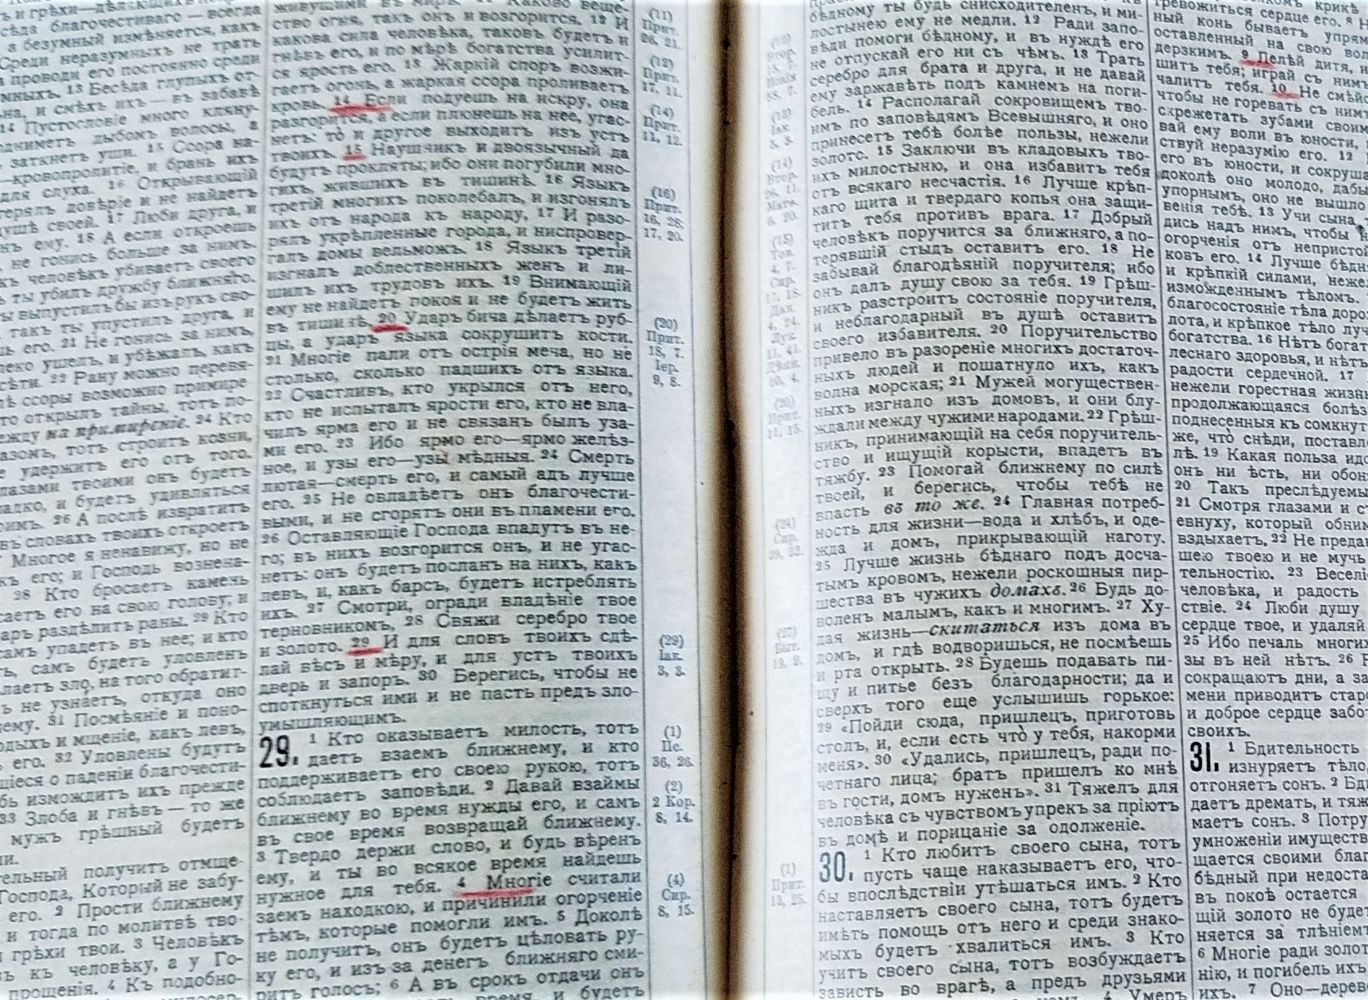 ъ и грѣхи—дѣлающихъ
сѣда благочестиваго — всегда
а безумный измѣняется, какъ
Среди неразумныхъ не трать
а проводи его постоянно среди
мныхъ. 13 Бесѣда глупыхъ от-
на, и смѣхъ ихъ — въ забавѣ
14 Пустословіе много кляну-
однимет дыбомъ волосы, а
заткнетъ уши. 15 Ссора на-
—кровопролитіе, и брань ихъ
для слуха. 16 Открывающій
терялъ довѣріе и не найдетъ
душѣ своей. 17 Люби друга, и
нъ ему. 18 А если откроешь
, не гонись больше за нимъ.
къ человѣкъ убиваетъ своего
ты убилъ дружбу ближняго.
ты выпустилъ бы изъ рукъ сво-
такъ ты упустилъ друга, и
шь его. 21 Не гонись за нимъ,
леко ушелъ, и убѣжалъ, какъ
сѣти. 22 Рану можно перевя-
лѣ ссоры возможно примире
то открылъ тайны, тотъ по-
ежду на примиреніе. 24 Кто
азомъ, тотъ строитъ козни,
е удержитъ его отъ того.
лазами твоими онъ будетъ
адко, и будетъ удивляться
оимъ. 26 А послѣ извратитъ
въ словахъ твоихъ откроетъ
Многое я ненавижу, но не
къ его; и Господь вознена-
28 Кто бросаетъ камень
саетъ его на свою голову, и
даръ раздѣлитъ раны. 29 Кто
самъ упадетъ въ нее; и кто
ь, самъ будетъ уловленъ
лаетъ зло, на того обратит-
ъ не узнаетъ, откуда оно
нему. 31 Посмѣяніе и поно-
рдыхъ и мщеніе, какъ левъ,
ъ его. 32 Уловлены будутъ
щіеся о паденіи благочести-
бь измождитъ ихъ прежде
33 Злоба и гнѣвъ — то же
мужъ грѣшный будетъ
ми.
тельный получитъ отмще-
Господа, Который не забу-
его. 2 Прости ближнему
и тогда по молитвѣ тво-
грѣхи твои. 3 Человѣкъ
ъ къ человѣку, а у Го-
прощенія. 4 Къ подобно-
живущими въ мирѣ. Каково веще-
ство огня, такъ онъ и возгорится. 12 И
какова сила человѣка, таковъ будетъ и
гнѣвъ его, и по мѣрѣ богатства усилит-
ся ярость его. 13 Жаркій споръ возжи-
гаетъ огонь, а жаркая ссора проливаетъ
кровь. 14 Если подуешь на искру, она
разгорится, а если плюнешь на нее, угас-
нетъ: то и другое выходитъ изъ устъ
твоихъ. 15 Наушникъ и двоязычный да
будутъ прокляты; ибо они погубили мно-
гихъ, жившихъ въ тишинѣ. 16 Языкъ
третій многихъ поколебалъ, и изгонялъ
ихъ отъ народа къ народу, 17 И разо-
рялъ укрѣпленные города, и ниспровер-
галъ домы вельможъ. 18 Языкъ третій
изгналъ доблественныхъ женъ и ли-
шилъ ихъ трудовъ ихъ. 19 Внимающій
ему не найдетъ покоя и не будетъ жить
въ тишинѣ. 20 Ударъ бича дѣлаетъ руб-
цы, а ударъ языка сокрушитъ кости.
21 Многіе пали отъ острія меча, но не
столько, сколько падшихъ отъ языка.
22 Счастливъ, кто укрылся отъ него,
кто не испыталъ ярости его, кто не вла-
чилъ ярма его и не связанъ былъ уза-
ми его. 23 Ибо ярмо его—ярмо желѣз-
ное, и узы его—узы мѣдныя. 24 Смерть
лютая—смерть его, и самый адъ лучше
его. 25 Не овладѣетъ онъ благочести-
выми, и не сгорятъ они въ пламени его.
26 Оставляющіе Господа впадутъ въ не-
го; въ нихъ возгорится онъ, и не угас-
нетъ: онъ будетъ посланъ на нихъ, какъ
левъ, и, какъ барсъ, будетъ истреблять
ихъ. 27 Смотри, огради владѣніе твое
терновникомъ, 28 Свяжи серебро твое
и золото. 29 И для словъ твоихъ сдѣ-
лай вѣсъ и мѣру, и для устъ твоихъ
дверь и запоръ. 30 Берегись, чтобы не
споткнуться ими и не пасть предъ зло-
умышляющимъ.
29. 1 Кто оказываетъ милость, тотъ
даетъ взаемъ ближнему, и кто
поддерживаетъ его своею рукою, тотъ
соблюдаетъ заповѣди. 2 Давай взаймы
ближнему во время нужды его, и самъ
въ свое время возвращай ближнему.
3 Твердо держи слово, и будь вѣренъ
ему, и ты во всякое время найдешь
нужное для тебя. 4 Многіе считали
заемъ находкою, и причинили огорченіе
тѣмъ, которые помогли имъ. 5 Доколѣ
не получитъ, онъ будетъ цѣловать ру-
ку его, и изъ-за денегъ ближняго сми-
ритъ голосъ; 6 А въ срокъ отдачи онъ
время, и будетъ
(11)
Прит.
26, 21.
(12)
Прит.
17, 11.
(14)
Прит.
11, 12.
(16)
Прит.
16, 28;
17, 20.
(20)
Прит.
18, 7.
Іер.
9, 8.
(29)
Іак.
3, 3.
(1)
Пс.
36, 26.
(2)
2 Кор.
8, 14.
(4)
Сир.
8, 15.
(20)
Прит.
11, 15.
(24)
Сир.
39, 32.
(27)
Быт.
19, 9.
(1)
Прит.
13, 25.
бѣдному ты будь снисходителенъ, и ми-
лостынею ему не медли. 12 Ради запо-
вѣди помоги бѣдному, и въ нуждѣ его
не отпускай его ни съ чѣмъ. 13 Трать
серебро для брата и друга, и не давай
ему заржавѣть подъ камнемъ на поги-
бель. 14 Располагай сокровищемъ тво-
имъ по заповѣдямъ Всевышняго, и оно
принесетъ тебѣ болѣе пользы, нежели
золото. 15 Заключи въ кладовыхъ тво-
ихъ милостыню, и она избавитъ тебя
отъ всякаго несчастія. 16 Лучше крѣп-
каго щита и твердаго копья она защи-
титъ тебя противъ врага. 17 Добрый
человѣкъ поручится за ближняго, а по-
терявшій стыдъ оставитъ его. 18 Не
забывай благодѣяній поручителя; ибо
онъ далъ душу свою за тебя. 19 Грѣш-
никъ разстроитъ состояніе поручителя,
и неблагодарный въ душѣ оставитъ
своего избавителя. 20 Поручительство
привело въ разореніе многихъ достаточ-
ныхъ людей и пошатнуло ихъ, какъ
волна морская; 21 Мужей могуществен-
ныхъ изгнало изъ домовъ, и они блу-
ждали между чужими народами. 22 Грѣш-
никъ, принимающій на себя поручитель-
ство и ищущій корысти, впадетъ въ
тяжбу. 23 Помогай ближнему по силѣ
твоей, и берегись, чтобы тебѣ не
впасть въ то же. 24 Главная потреб-
ность для жизни—вода и хлѣбъ, и оде-
жда и домъ, прикрывающій наготу.
25 Лучше жизнь бѣднаго подъ досча-
тымъ кровомъ, нежели роскошныя пир-
шества въ чужихъ домахъ. 26 Будь до-
воленъ малымъ, какъ и многимъ. 27 Ху-
дая жизнь—скитаться изъ дома въ
домъ, и гдѣ водворишься, не посмѣешь
и рта открыть. 28 Будешь подавать пи-
щу и питье безъ благодарности; да и
сверхъ того еще услышишь горькое:
29 «Пойди сюда, пришлецъ, приготовь
столъ, и, если есть что у тебя, накорми
меня». 30 «Удались, пришлецъ, ради по-
четнаго лица; братъ пришелъ ко мнѣ
въ гости, домъ нуженъ». 31 Тяжелъ для
человѣка съ чувствомъ упрекъ за пріютъ
въ домѣ и порицаніе за одолженіе.
30. 1 Кто любитъ своего сына, тотъ
пусть чаще наказываетъ его, что-
бы впослѣдствіи утѣшаться имъ. 2 Кто
наставляетъ своего сына, тотъ будетъ
имѣть помощь отъ него и среди знако-
мыхъ будетъ хвалиться имъ. 3 Кто
учитъ своего сына, тотъ возбуждаетъ
зависть во врагѣ, а предъ друзьями
4 Умеръ
крикѣ
тревожиться сердце его. 8
ный конь бываетъ упрям
оставленный на свою во
дерзкимъ. 9 Лелѣй дитя, и
шитъ тебя; играй съ нимъ
чалитъ тебя. 10 Не смѣй
чтобы не горевать съ нимъ
скрежетать зубами своими
вай ему воли въ юности,
ствуй неразумію его. 12
его въ юности, и сокруша
доколѣ оно молодо, дабы
упорнымъ, оно не вышло
венія тебѣ. 13 Учи сына
дись надъ нимъ, чтобы н
огорченія отъ непристой
ковъ его. 14 Лучше бѣдн
и крѣпкій силами, неже
изможденнымъ тѣломъ.
благосостояніе тѣла доро
лота, и крѣпкое тѣло лу
богатства. 16 Нѣтъ богат
леснаго здоровья, и нѣтъ
радости сердечной. 17
нежели горестная жизнь
продолжающаяся болѣз
поднесенныя къ сомкнут
же, что снѣди, поставл
лѣ. 19 Какая польза идо
онъ ни ѣстъ, ни обон
20 Такъ преслѣдуемы
21 Смотря глазами и ст
евнуху, который обним
вздыхаетъ. 22 Не преда
шею твоею и не мучь
тельностію. 23 Веселі
человѣка, и радость
ствіе. 24 Люби душу
сердце твое, и удаляй
25 Ибо печаль многих
зы въ ней нѣтъ. 26
сокращаютъ дни, а за
мени приводитъ старо
и доброе сердце забо
своихъ.
31. 1 Бдительность
изнуряетъ тѣло,
отгоняетъ сонъ. 2 Бд
даетъ дремать, и тяж
маетъ сонъ. 3 Потру
умноженіи имуществ
щается своими благ
бѣдный при недоста
въ покоѣ остается
щій золото не будет
няется за тлѣніемъ
6 Многіе ради золот
нію, и погибель ихъ
ихъ. 7 Оно—дерев